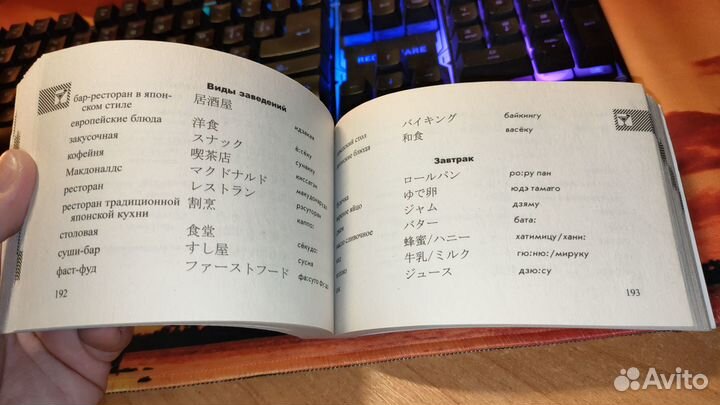 Виды заведений
бар-ресторан в япон-
ском стиле 居酒屋 идзакая
европейские блюда 洋食 ё:сёку
закусочная スナック сунакку
кофейня 喫茶店 киссатэн
Макдоналдс マクドナルド макудонарудо
ресторан レストラン рэсуторан
ресторан традиционной
японской кухни 割烹 каппо:
столовая 食堂 сёкудо:
суши-бар すし屋 сусия
фаст-фуд ファーストフード
192
стол バイキング байкингу
блюда 和食 васёку
Завтрак
ロールパン ро:ру пан
яйцо ゆで卵 юдэ тамаго
ジャム дзяму
сливочное バター бата:
蜂蜜/ハニー хатимицу/хани:
牛乳/ミルク гю:ню:/мируку
ジュース дзю:су
193
Avito